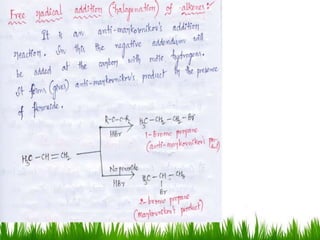 Free radical addition (halogenation) of alkenes:-
It is an anti-markovnikov's addition
reaction. In this the negative addendum will
be added at the carbon with more hydrogens.
It forms (gives) anti-markovnikov's product in the presence
of peroxide.
R-O-O-R
HBr
H₃C-CH₂-CH₂-Br
1-Bromo propane
(anti-markovnikov
H₃C-CH=CH₂
No peroxide
HBr
H₃C-CH-CH₃
Br
2-bromo propane
(markovnikov's product)